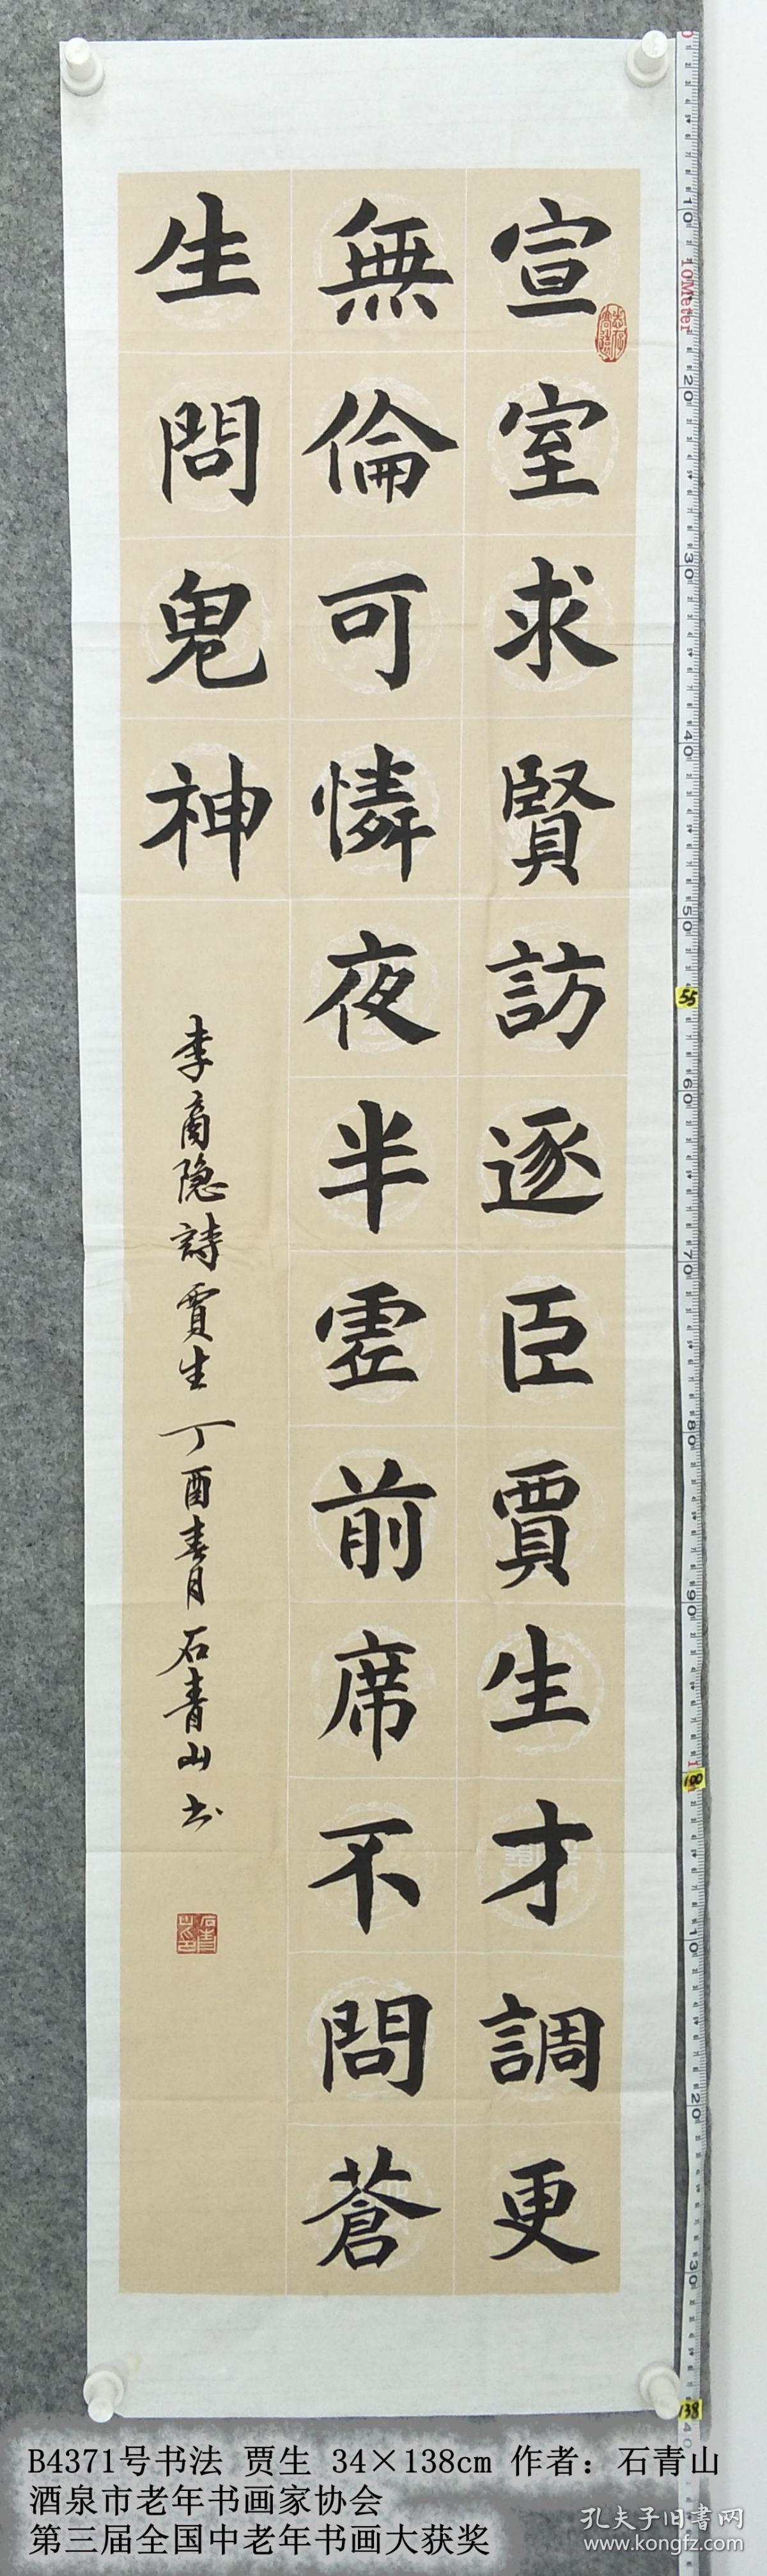 宣室求賢訪逐臣賈生才調更
無倫可憐夜半虚前席不問蒼
生問鬼神
李商隐詩賈生丁酉春月石青山书
10Meter
10
20
30
40
50
55
60
70
80
90
100
10
20
30
138
40
B4371号书法 贾生 34×138cm 作者：石青山
酒泉市老年书画家协会
第三届全国中老年书画大获奖
孔夫子旧書网
www.kongfz.com